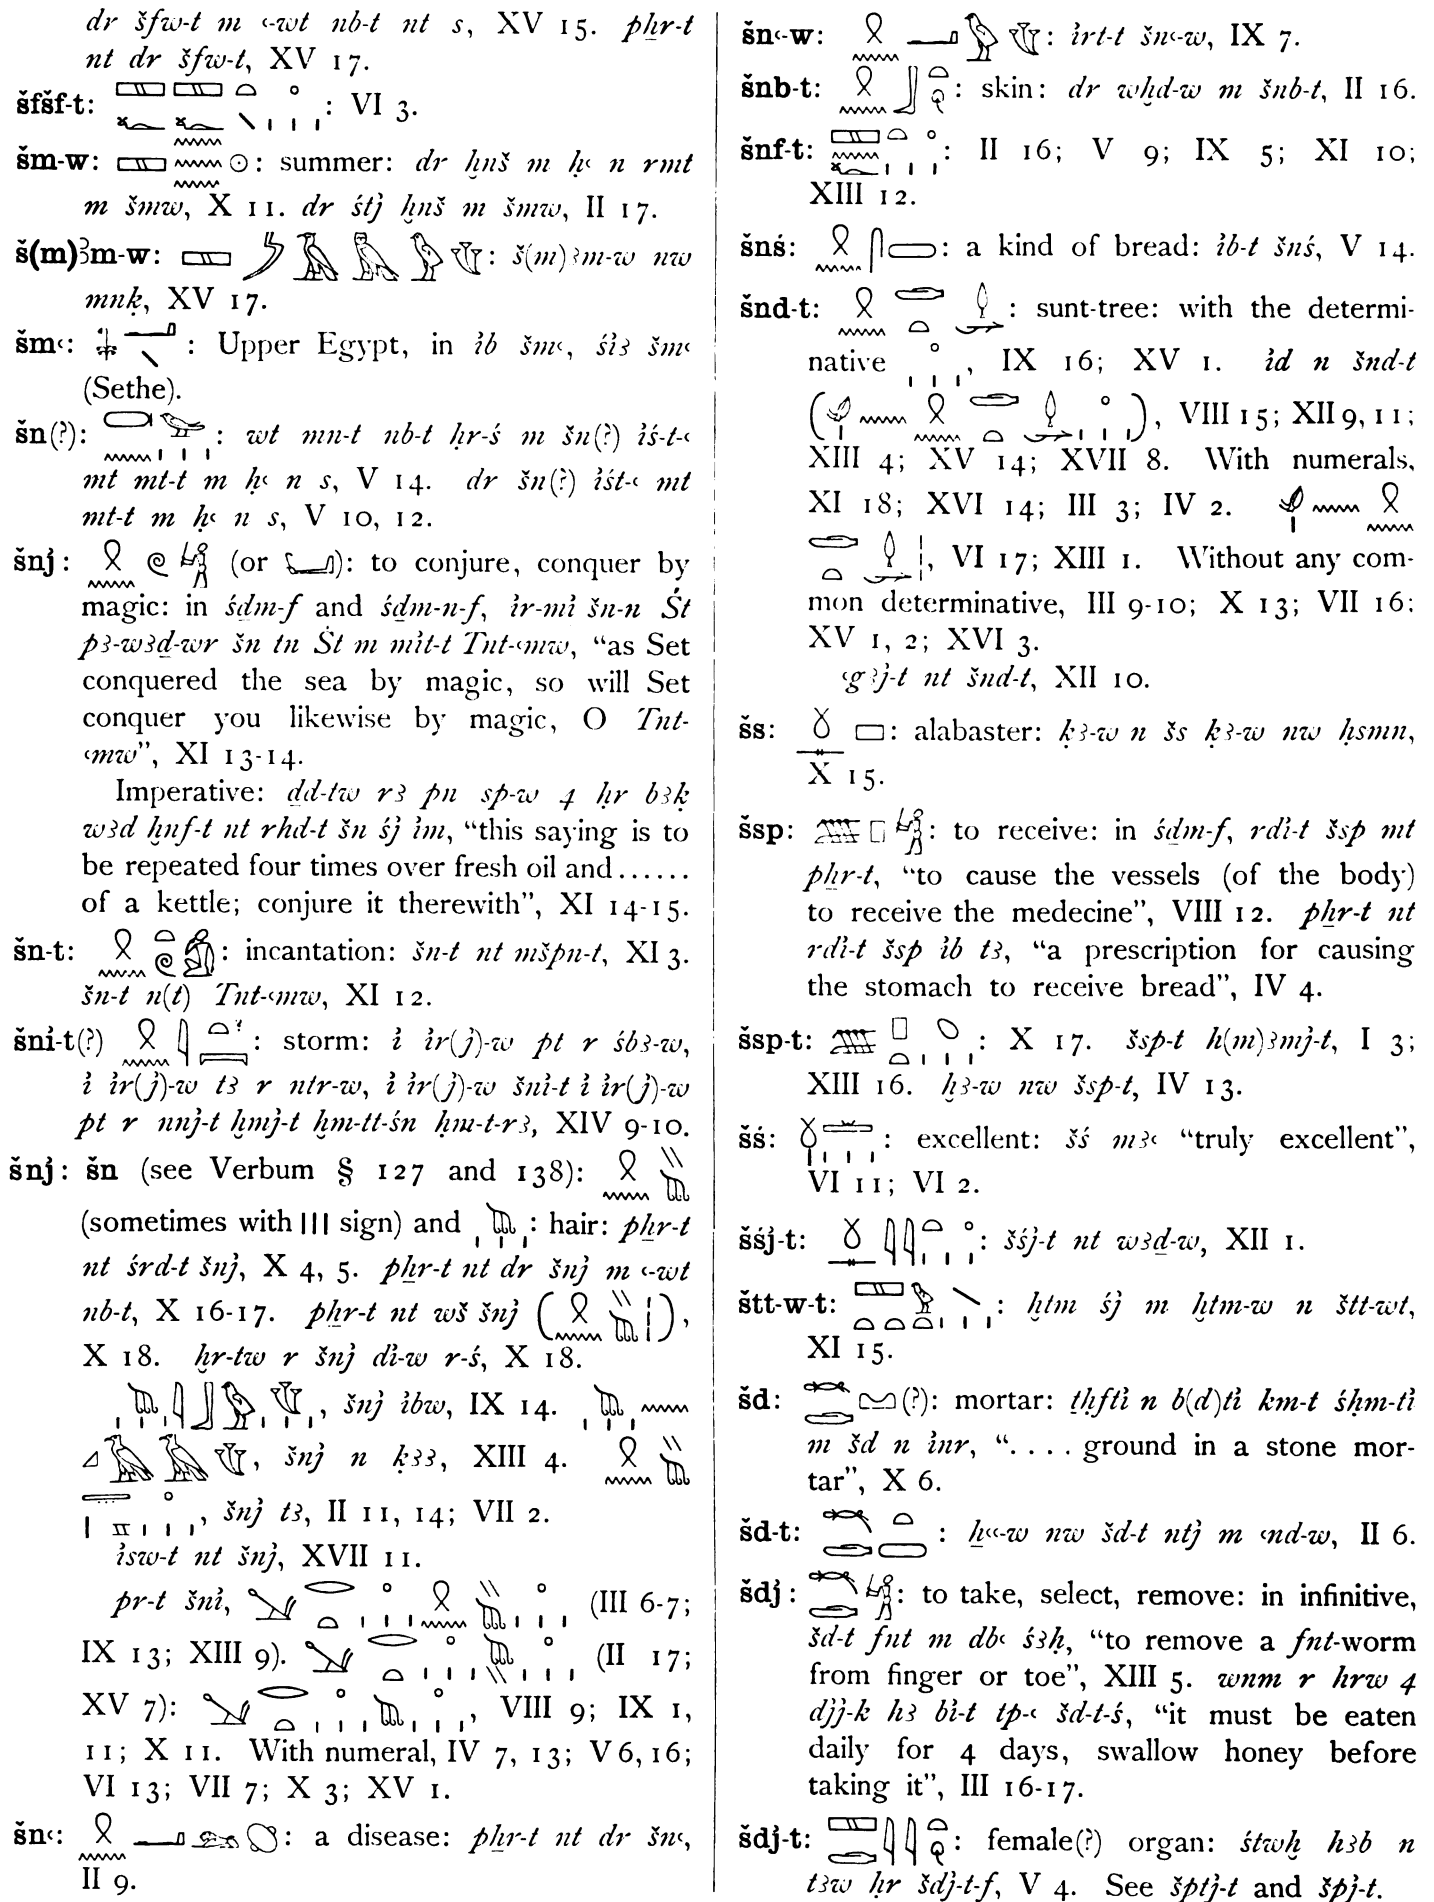 dr šfw-t m ꜥ-wt nb-t nt s, XV 15. pẖr-t
nt dr šfw-t, XV 17.
šfšf-t: : VI 3.
šm-w: : summer: dr ḫnš m ḥꜥ n rmt
m šmw, X 11. dr śtj̓ ḫnš m šmw, II 17.
š(m)ꜣm-w: : š(m)ꜣm-w nw
mnḳ, XV 17.
šmꜥ: : Upper Egypt, in i̓b šmꜥ, śi̓ꜣ šmꜥ
(Sethe).
šn(?): : wt mn-t nb-t ḥr-ś m šn(?) i̓ś-t-ꜥ
mt mt-t m ḥꜥ n s, V 14. dr šn(?) i̓śt-ꜥ mt
mt-t m ḥꜥ n s, V 10, 12.
šnj̓: (or ): to conjure, conquer by
magic: in śḏm-f and śḏm-n-f, i̓r-mi̓ šn-n Śt
pꜣ-wꜣḏ-wr šn tn Śt m mi̓t-t Tnt-ꜥmw, “as Set
conquered the sea by magic, so will Set
conquer you likewise by magic, O Tnt-
ꜥmw”, XI 13-14.
Imperative: ḏd-tw rꜣ pn sp-w 4 ḥr bꜣḳ
wꜣd ḫnf-t nt rhd-t šn śj̓ i̓m, “this saying is to
be repeated four times over fresh oil and......
of a kettle; conjure it therewith”, XI 14-15.
šn-t: : incantation: šn-t nt mšpn-t, XI 3.
šn-t n(t) Tnt-ꜥmw, XI 12.
šni̓-t(?) : storm: i̓ i̓r(j̓)-w pt r śbꜣ-w,
i̓ i̓r(j̓)-w tꜣ r ntr-w, i̓ i̓r(j̓)-w šni̓-t i̓ i̓r(j̓)-w
pt r nnj̓-t ḫmj̓-t ḫm-tt-śn ḥm-t-rꜣ, XIV 9-10.
šnj̓: šn (see Verbum § 127 and 138):
(sometimes with ||| sign) and : hair: pẖr-t
nt śrd-t šnj̓, X 4, 5. pẖr-t nt dr šnj̓ m ꜥ-wt
nb-t, X 16-17. pẖr-t nt wš šnj̓ ( ),
X 18. ḫr-tw r šnj̓ di̓-w r-ś, X 18.
, šnj̓ i̓bw, IX 14.
, šnj̓ n ḳꜣꜣ, XIII 4.
, šnj̓ tꜣ, II 11, 14; VII 2.
i̓sw-t nt šnj̓, XVII 11.
pr-t šni̓, (III 6-7;
IX 13; XIII 9). (II 17;
XV 7): , VIII 9; IX 1,
11; X 11. With numeral, IV 7, 13; V 6, 16;
VI 13; VII 7; X 3; XV 1.
šnꜥ: : a disease: pẖr-t nt dr šnꜥ,
II 9.
šnꜥ-w: : i̓rt-t šnꜥ-w, IX 7.
šnb-t: : skin: dr wḫd-w m šnb-t, II 16.
šnf-t: : II 16; V 9; IX 5; XI 10;
XIII 12.
šnś: : a kind of bread: i̓b-t šnś, V 14.
šnd-t: : sunt-tree: with the determi-
native , IX 16; XV 1. i̓d n šnd-t
( ), VIII 15; XII 9, 11;
XIII 4; XV 14; XVII 8. With numerals,
XI 18; XVI 14; III 3; IV 2.
, VI 17; XIII 1. Without any com-
mon determinative, III 9-10; X 13; VII 16;
XV 1, 2; XVI 3.
ꜥgꜣj̓-t nt šnd-t, XII 10.
šs: : alabaster: ḳꜣ-w n šs ḳꜣ-w nw ḥsmn,
X 15.
šsp: : to receive: in śḏm-f, rdi̓-t šsp mt
pẖr-t, “to cause the vessels (of the body)
to receive the medecine”, VIII 12. pẖr-t nt
rdi̓-t šsp i̓b tꜣ, “a prescription for causing
the stomach to receive bread”, IV 4.
šsp-t: : X 17. šsp-t h(m)ꜣmj̓-t, I 3;
XIII 16. ḫꜣ-w nw šsp-t, IV 13.
šś: : excellent: šś mꜣꜥ “truly excellent”,
VI 11; VI 2.
šśj̓-t: : šśj̓-t nt wꜣḏ-w, XII 1.
štt-w-t: : ḫtm śj̓ m ḫtm-w n štt-wt,
XI 15.
šd: (?): mortar: ṯḥfti̓ n b(d)ti̓ km-t śḥm-ti̓
m šd n i̓nr, “.... ground in a stone mor-
tar”, X 6.
šd-t: : ẖꜥꜥ-w nw šd-t ntj̓ m ꜥnd-w, II 6.
šdj̓: : to take, select, remove: in infinitive,
šd-t fnt m dbꜥ śꜣḥ, “to remove a fnt-worm
from finger or toe”, XIII 5. wnm r hrw 4
djj̓-k hꜣ bi̓-t tp-ꜥ šd-t-ś, “it must be eaten
daily for 4 days, swallow honey before
taking it”, III 16-17.
šdj̓-t: : female(?) organ: śtwḫ hꜣb n
tꜣw ḥr šdj̓-t-f, V 4. See šptj̓-t and špj̓-t.